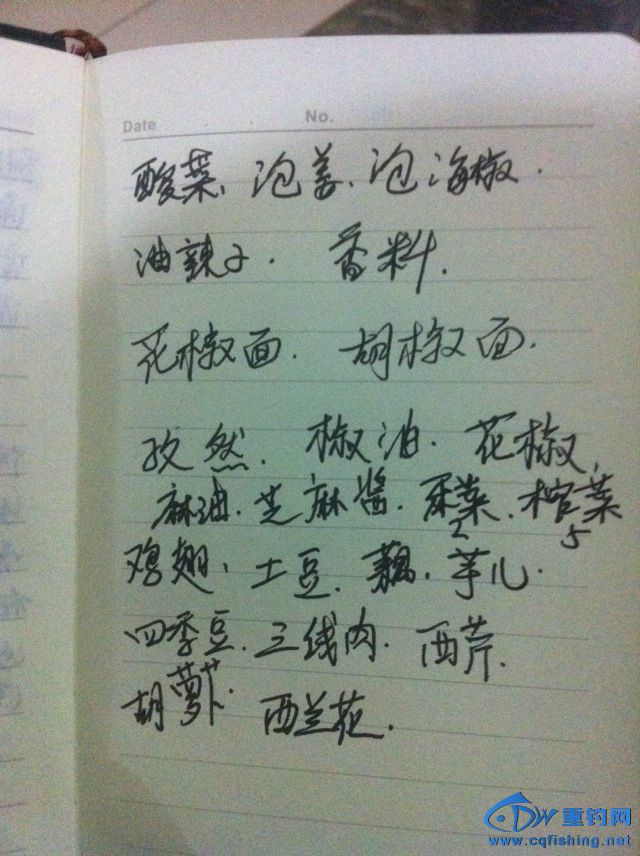 Date . . No.
酸菜、泡姜、泡海椒.
油辣子. 香料.
花椒面. 胡椒面.
孜然. 椒油. 花椒,
麻油. 芝麻酱. 芽菜. 榨菜
2 5
鸡翅、土豆. 藕. 芋儿.
四季豆. 三线肉. 西芹.
胡萝卜. 西兰花.
重钓网
www.cqfishing.net